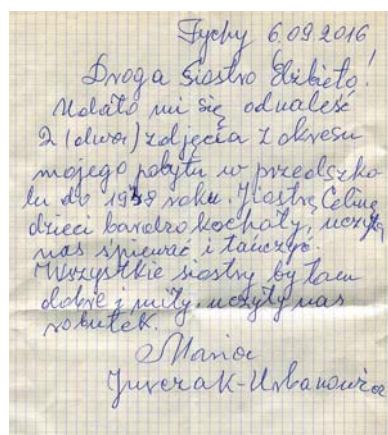 Tychy 6.09.2016
Droga Siostro Elżbieto!
Udało mi się odnaleść
2 (dwa) zdjęcia z okresu
mojego pobytu w przedszko
lu do 1939 roku. Siostrę Celinę
dzieci bardzo kochały, uczyła
nas śpiewać i tańczyć.
Wszystkie siostry były tam
dobre i miły, uczyły nas
robutek.
Maria
Jurczak-Urbanowicz